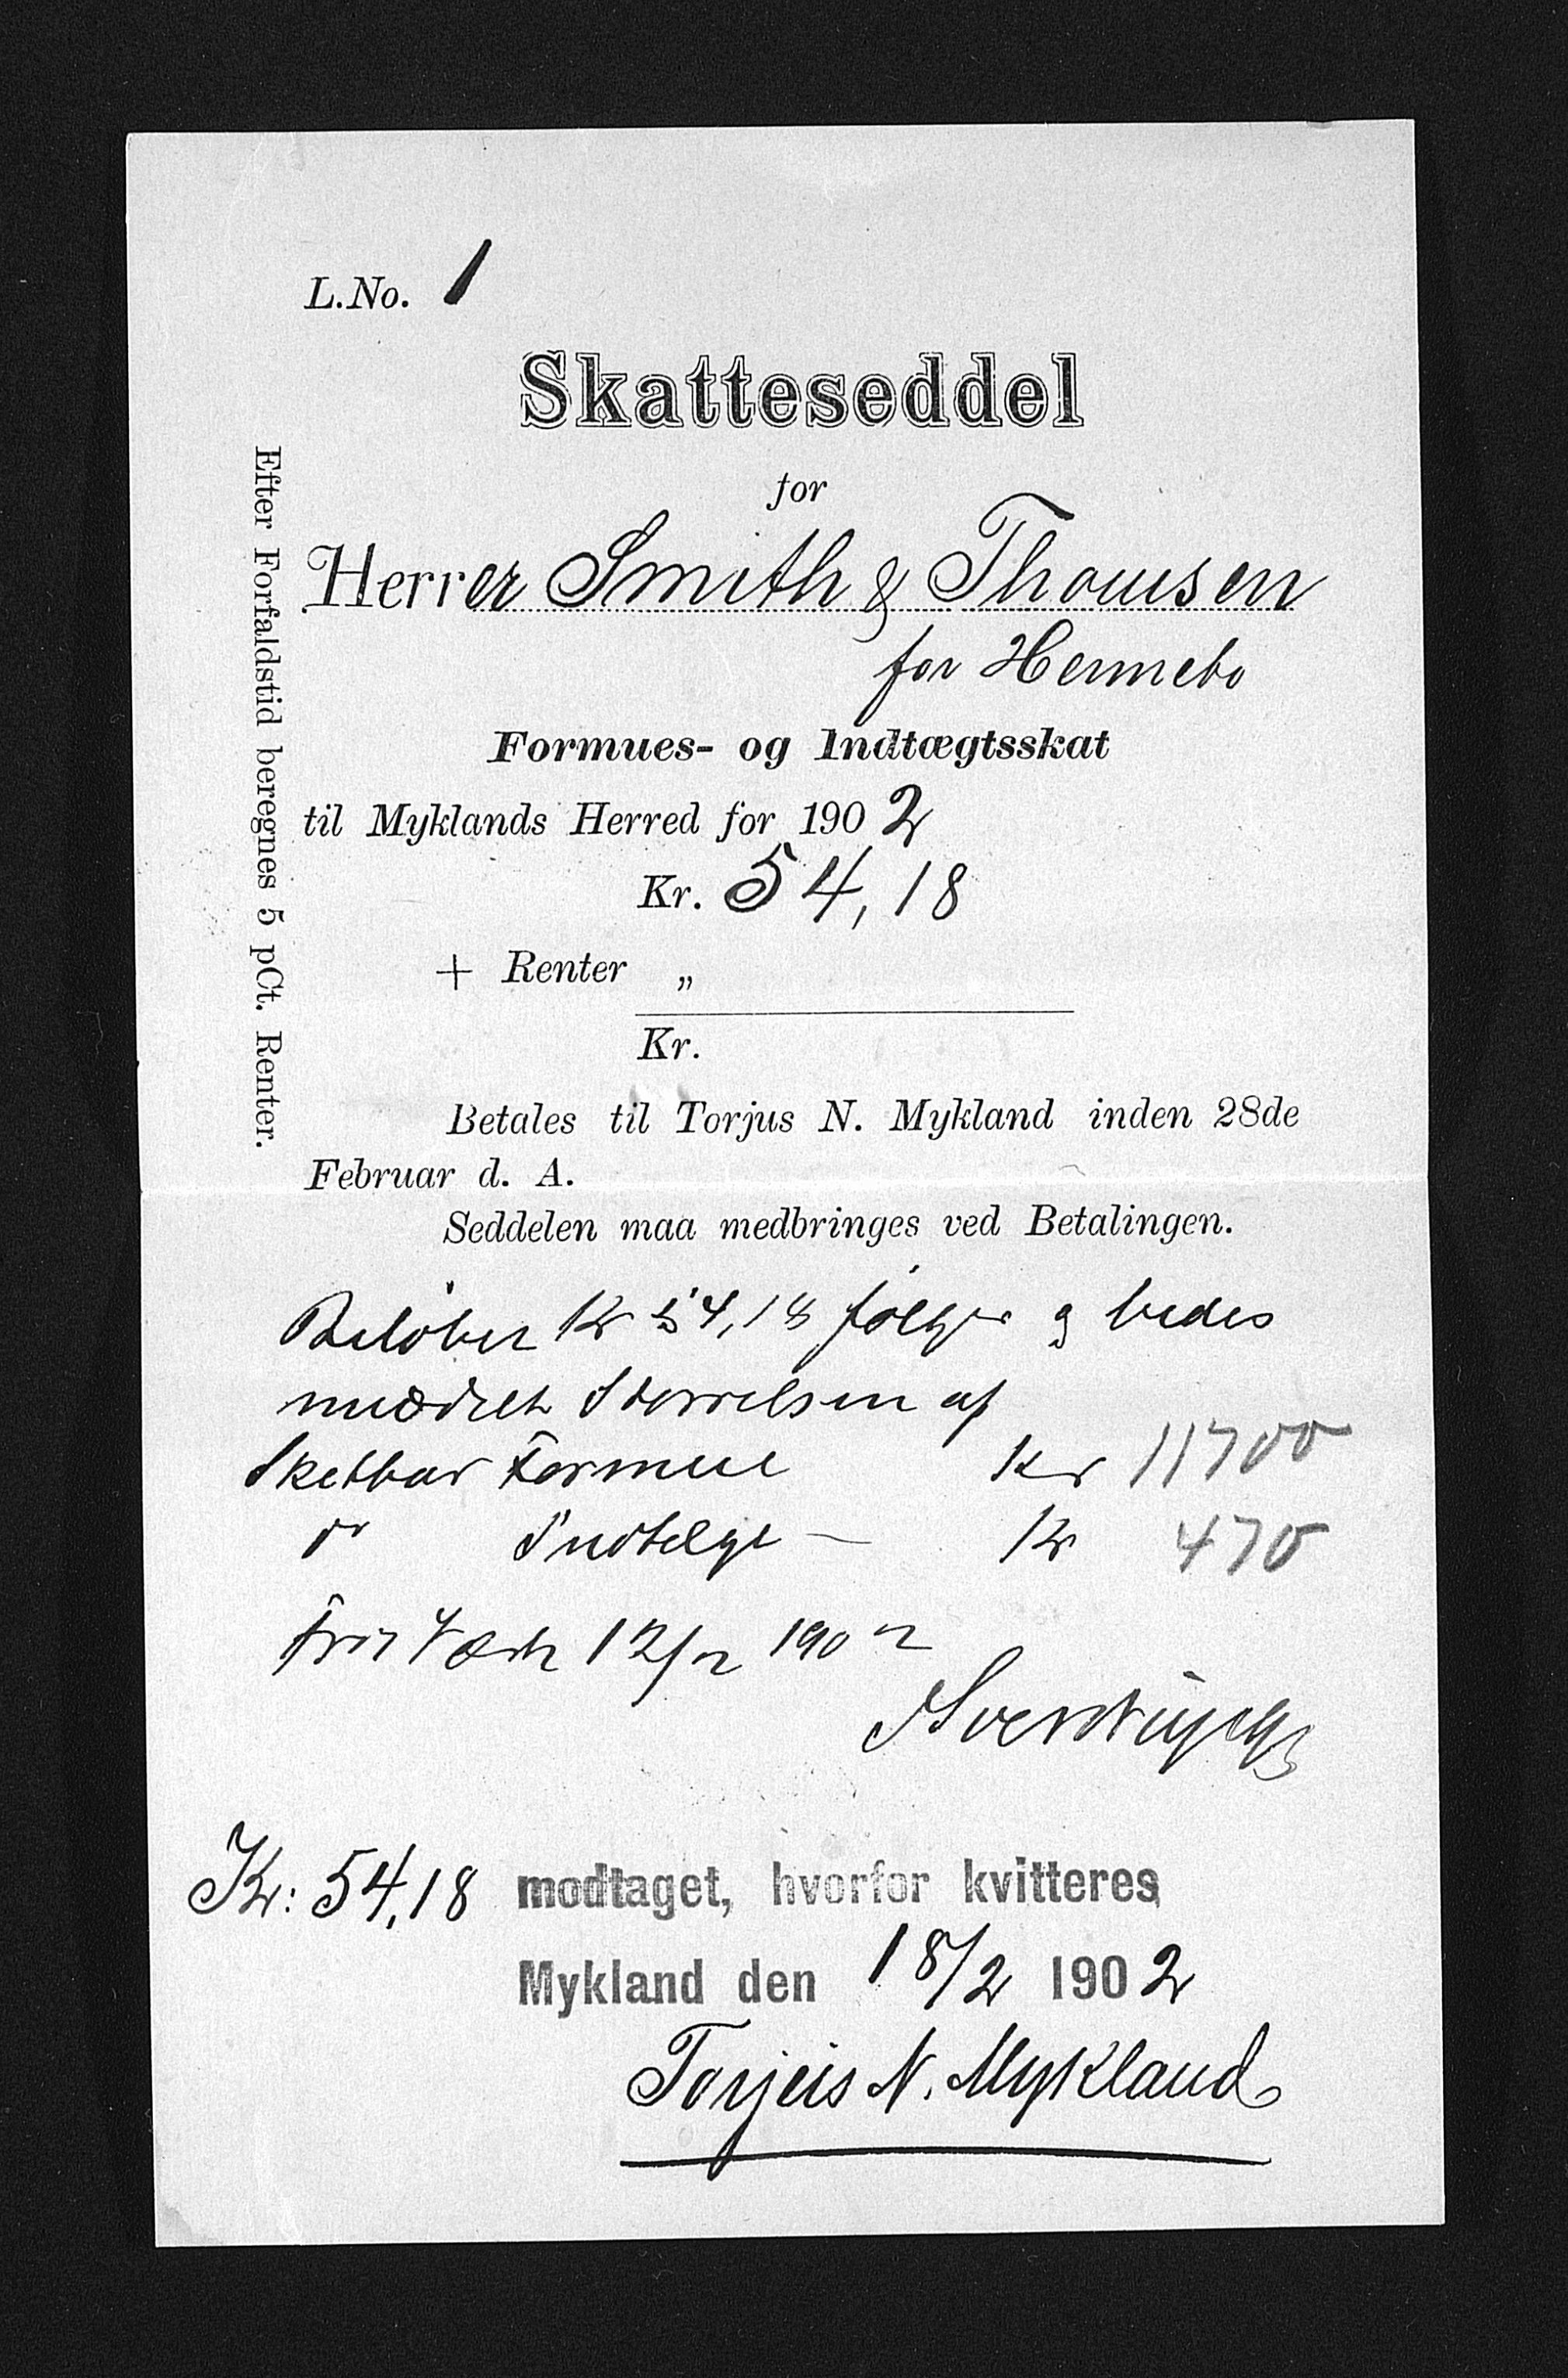 L.No. 1
Skatteseddel
for
Herrer Smith & Thomsen
for Hennebo
Formues- og Indtægtsskat
til Myklands Herred for 1902
Kr. 54,18
+ Renter „
Kr.
Betales til Torjus N. Mykland inden 28de
Februar d. A.
Seddelen maa medbringes ved Betalingen.
Efter Forfaldstid beregnes 5 pCt. Renter.
Beløbet Kr 54,18 følger og bedes
meddelt Størrelsen af
Skatbar Formue Kr 11700
do Indtægt — Kr 470
12/2 1902
Kr: 54,18 modtaget, hvorfor kvitteres
Mykland den 18/2 1902
Torjus N. Mykland